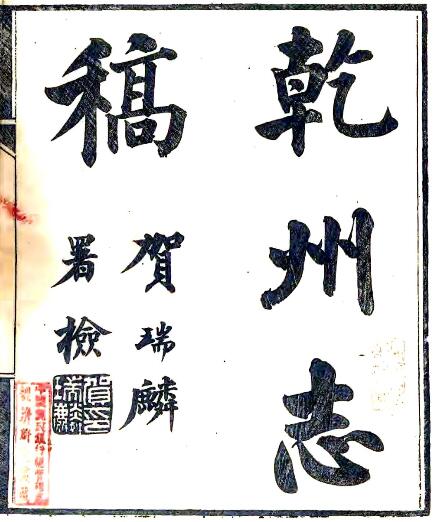 乾州志
稿
賀瑞麟
署檢
賀印瑞麟